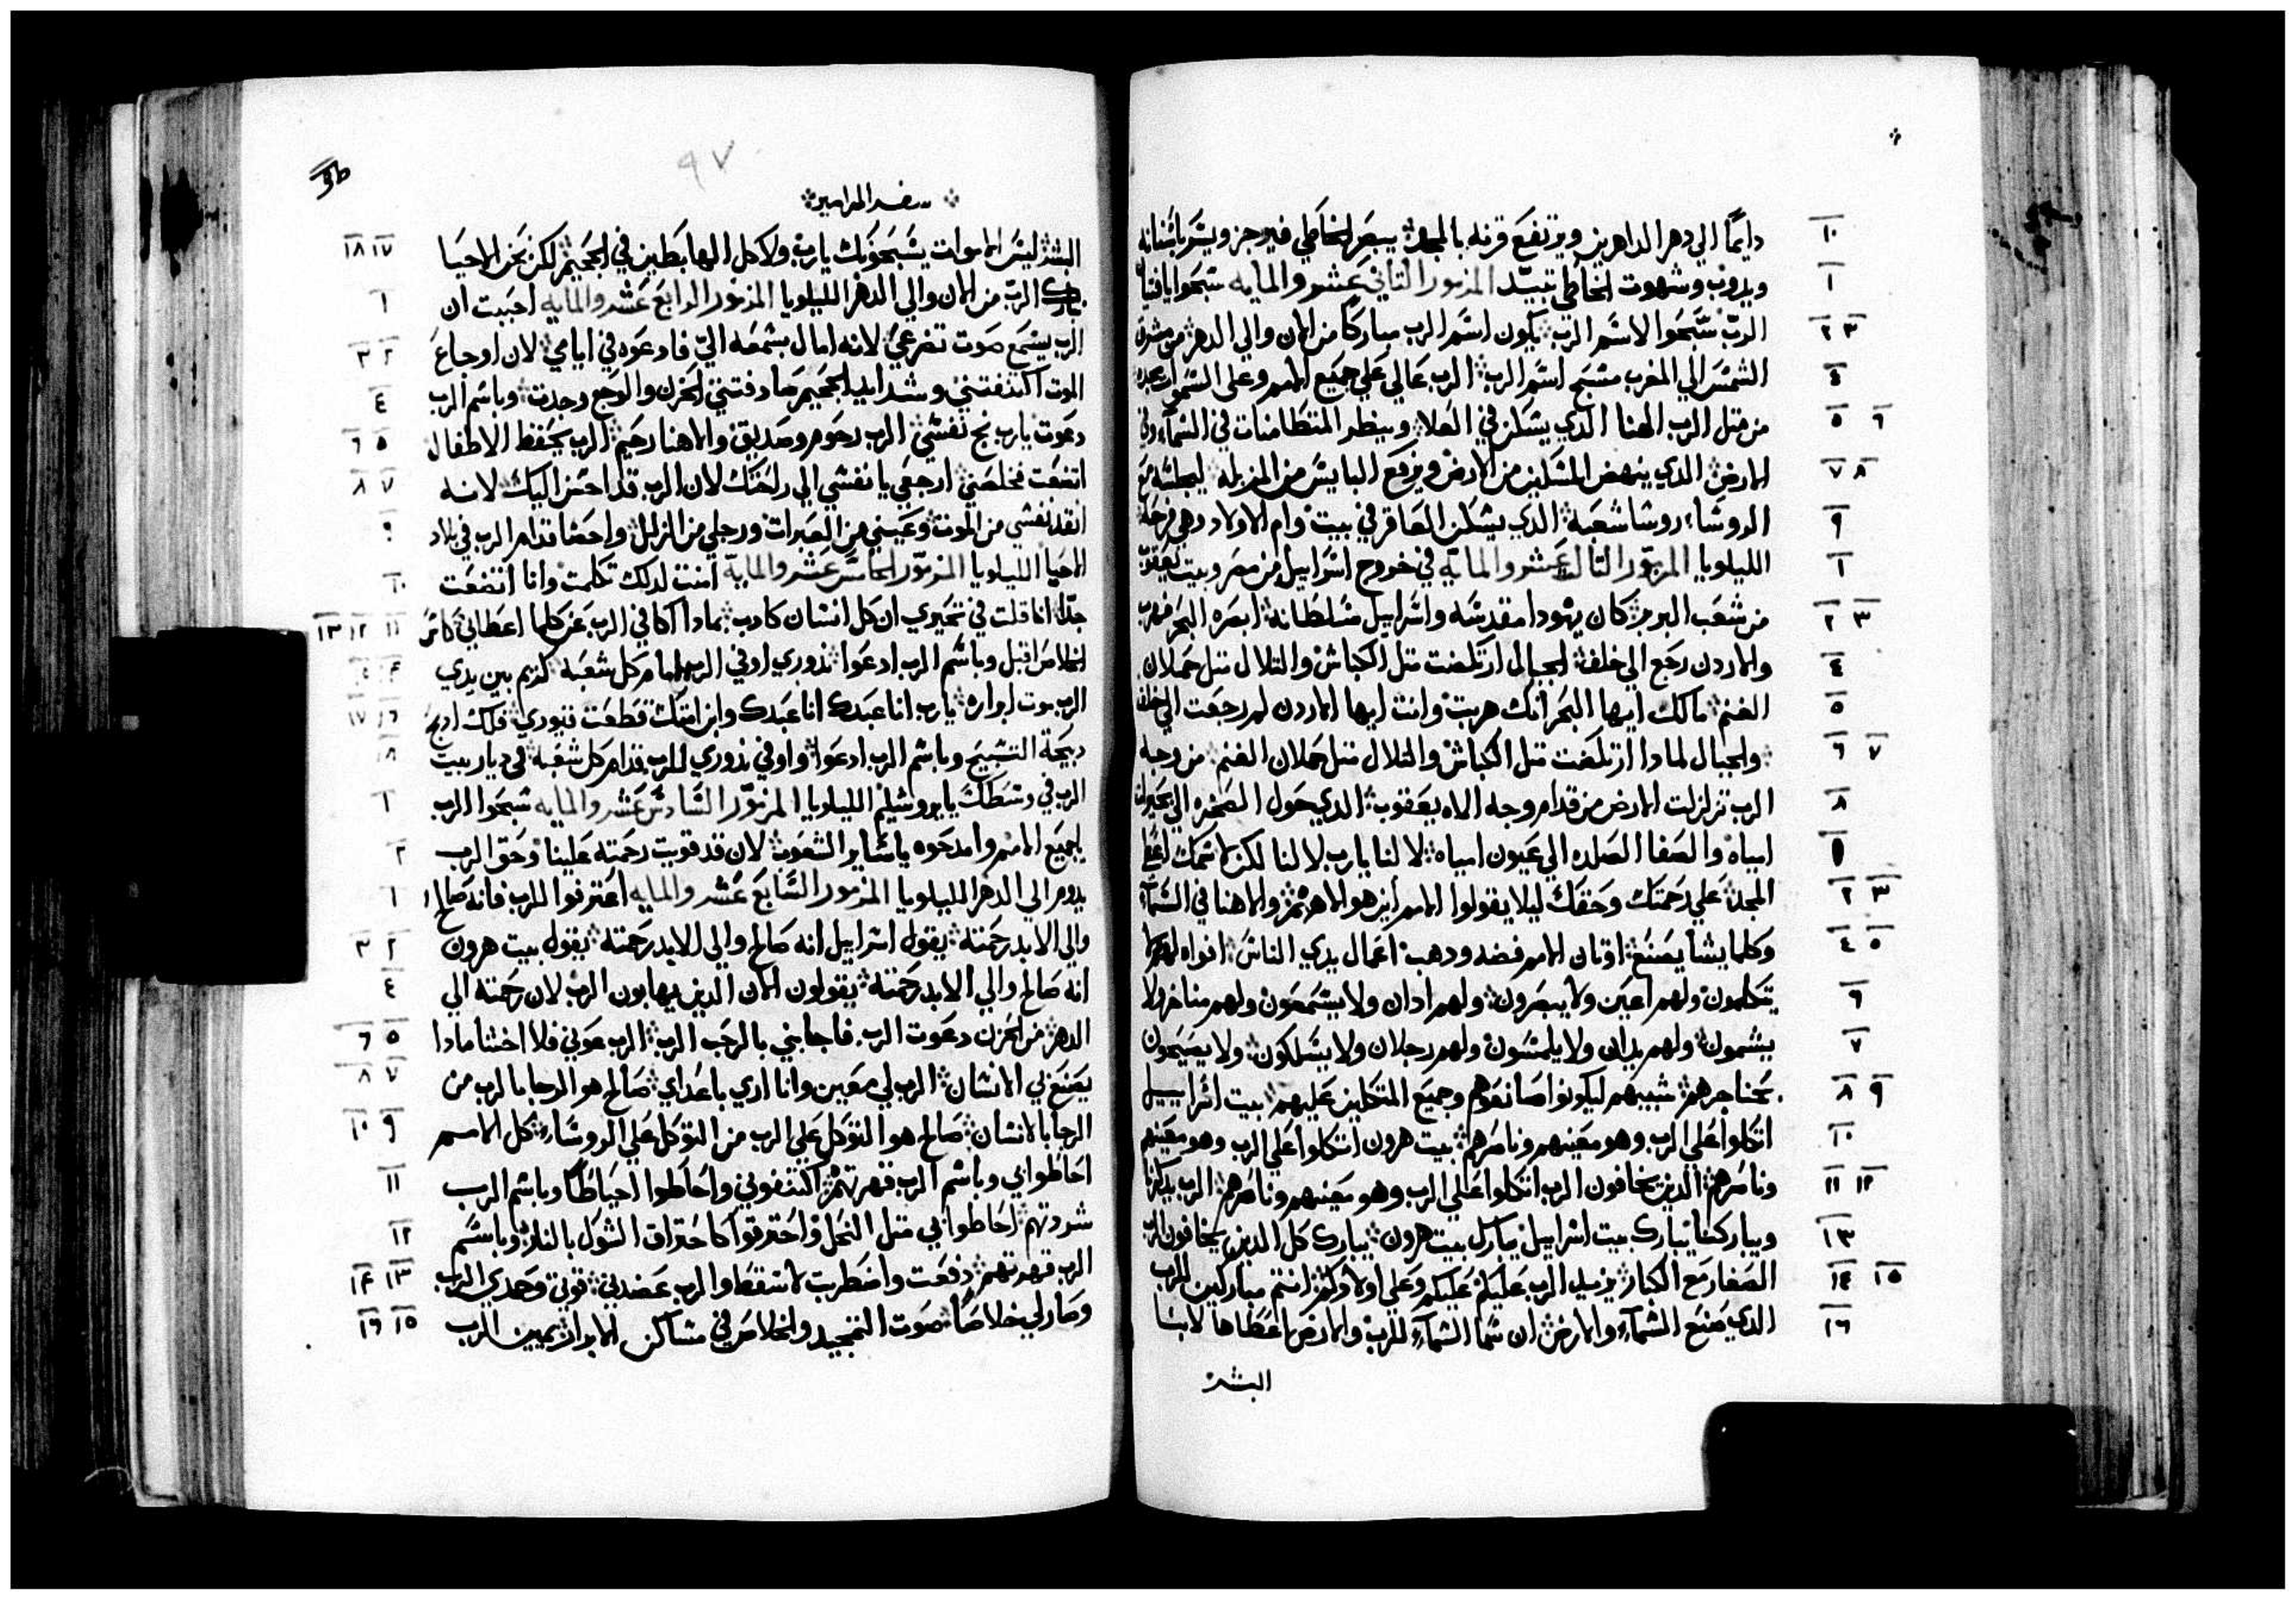 دايمًا الي دهر الداهرين ويرتفع قرنه بالمجد يبصر الخاطي فيرجز ويسر باسنانه
ويدوب وشهوت الخاطي تبيد المزمور التاني عشر والمايه سبحوا يافتيان
الرب سبحوا لاسم الرب يكون اسم الرب مباركًا من الان والي الدهر من مشرق
الشمس الي المغرب مسبح اسم الرب الرب عالي علي جميع الامم وعلي السموات مجده
من متل الرب الهنا الدي يسكن في العلا وينظر المتطامنات في السماء وفي
الارض الدي ينهض المسكين من الارض ويرفع البايس من المزبله ليجلسه مع
الروسا روسا شعبه الدي يسكن العاقر في بيت وام الاولاد وهي فرحه
الليلويا المزمور التالت عشر والمايه في خروج اسراييل من مصر وبيت يعقوب
من شعب البربر كان يهودا مقدسه واسراييل مسلطانه ابصره البحر فهرب
والاردن رجع الي خلف الجبال ارتكضت متل الكباش والتلال متل حملان
الغنم مالك ايها البحر انك هربت وانت ايها الاردن لم رجعت الي خلف
والجبال لمادا ارتكضت متل الكباش والتلال متل حملان الغنم من وجه
الرب تزلزلت الارض من قدام وجه الاه يعقوب الدي حول الصخره الي بحيرات
امياه والصفا الصلده الي عيون امياه لا لنا يارب لا لنا لكن لاسمك اعط
المجد علي رحمتك وحقك ليلا يقولوا الامم اين هو الاههم والاهنا في السماء
وكلما يشا يصنع اوتان الامم فضه ودهب اعمال يدي الناس افواه لهم لا
يتكلمون ولهم اعين ولا يبصرون ولهم ادان ولا يسمعون ولهم مناخر ولا
يشمون ولهم يدان ولا يلمسون ولهم رجلان ولا يسلكون ولا يصيحون
بحناجرهم شبيههم ليكونوا صانعوهم وجميع المتكلين عليهم بيت اسراييل
اتكلوا علي الرب وهو معينهم وناصرهم بيت هرون اتكلوا علي الرب وهو معينهم
وناصرهم الدين يخافون الرب اتكلوا علي الرب وهو معينهم وناصرهم الرب يدكرنا
ويباركنا يبارك بيت اسراييل يبارك بيت هرون يبارك كل الدين يخافون الرب
الصغار مع الكبار يزيد الرب عليكم عليكم وعلي اولادكم انتم مباركين للرب
الدي صنع السماء والارض ان سما السماء للرب والارض اعطاها لابنا
البشر
٩٧
سفر المزامير
البشر ليس الاموات يسبحونك يارب ولا كل الهابطين في الجحيم لكن نحن الاحيا
نبارك الرب من الان والي الدهر الليلويا المزمور الرابع عشر والمايه احببت ان
الرب يسمع صوت تضرعي لانه امال بسمعه الي فادعوه في ايامي لان اوجاع
الموت اكتنفتني وشدايد الجحيم صادفتني الحزن والوجع وجدت وباسم الرب
دعوت يارب نج نفسي الرب رحوم وصديق والاهنا رحيم الرب يحفظ الاطفال
اتضعت فخلصني ارجعي يا نفسي الي راحتك لان الرب قد احسن اليك لانه
انقد نفسي من الموت وعيني من العبرات ورجلي من الزلل واحضا قدام الرب في بلاد
الاحيا الليلويا المزمور الخامس عشر والمايه امنت لدلك تكلمت وانا اتضعت
جدًا انا قلت في تحيري ان كل انسان كادب بمادا اكافي الرب عن كلما اعطاني كاس
الخلاص اقبل وباسم الرب ادعوا نذوري اوفي الرب امام كل شعبه كريم بين يدي
الرب موت ابراره يارب انا عبدك انا عبدك وابن امتك قطعت قيودي فلك ادبح
دبيحة التسبيح وباسم الرب ادعوا واوفي نذوري للرب قدام كل شعبه في ديار بيت
الرب في وسطك يايروشليم الليلويا المزمور السادس عشر والمايه سبحوا الرب
ياجميع الامم وامدحوه ياساير الشعوب لان قد قويت رحمته علينا وحق الرب
يدوم الي الدهر الليلويا المزمور السابع عشر والمايه اعترفوا للرب فانه صالح
والي الابد رحمته يقول اسراييل انه صالح والي الابد رحمته يقول بيت هرون
انه صالح والي الابد رحمته يقولون الان الدين يهابون الرب لان رحمته الي
الدهر من الحزن دعوت الرب فاجابني بالرحب الرب الرب عوني فلا اخشا مادا
يصنع بي الانسان الرب لي معين وانا اري باعداي صالح هو الرجا بالرب من
الرجا بالانسان صالح هو التوكل علي الرب من التوكل علي الروساء كل الامم
احاطوا بي وباسم الرب قهرتهم اكتنفوني واحاطوا احياطًا وباسم الرب
شردتهم احاطوا بي متل النحل واحترقوا كاحتراق الشوك بالنار وباسم
الرب قهرتهم دفعت واضطربت لاسقط والرب عضدني قوتي وحمدي الرب
وصار لي خلاصًا صوت التمجيد والخلاص في مساكن الابرار يمين الرب